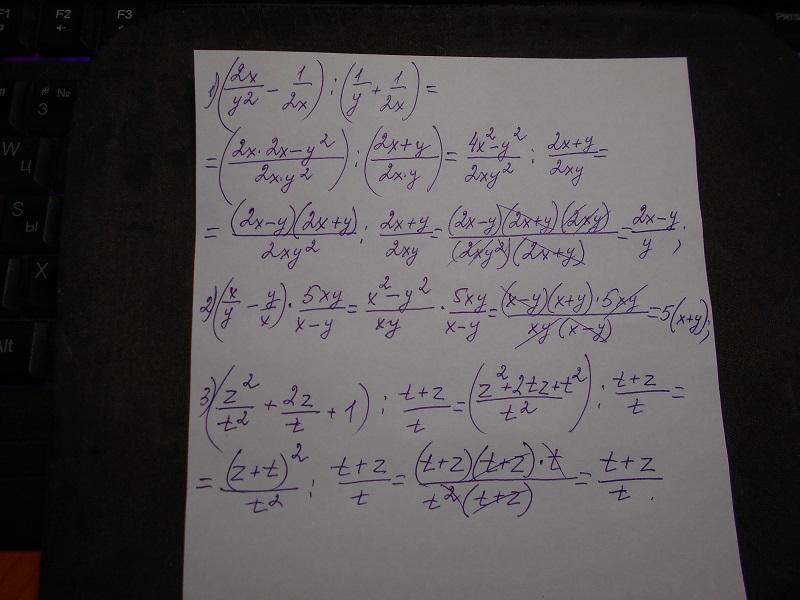 F1 F2 F3
# 3 №
W Ц
S Ы
X
Alt
1) (2x/y² - 1/2x) : (1/y + 1/2x) =
= (2x·2x-y²/2x·y²) : (2x+y/2x·y) = 4x²-y²/2xy² : 2x+y/2xy =
= (2x-y)(2x+y)/2xy² : 2x+y/2xy = (2x-y)(2x+y)(2xy)/(2xy²)(2x+y) = 2x-y/y ;
2) (x/y - y/x) · 5xy/x-y = x²-y²/xy · 5xy/x-y = (x-y)(x+y)·5xy/xy(x-y) = 5(x+y);
3) (z²/t² + 2z/t + 1) : t+z/t = (z²+2tz+t²/t²) : t+z/t =
= (z+t)²/t² : t+z/t = (t+z)(t+z)·t/t²(t+z) = t+z/t .